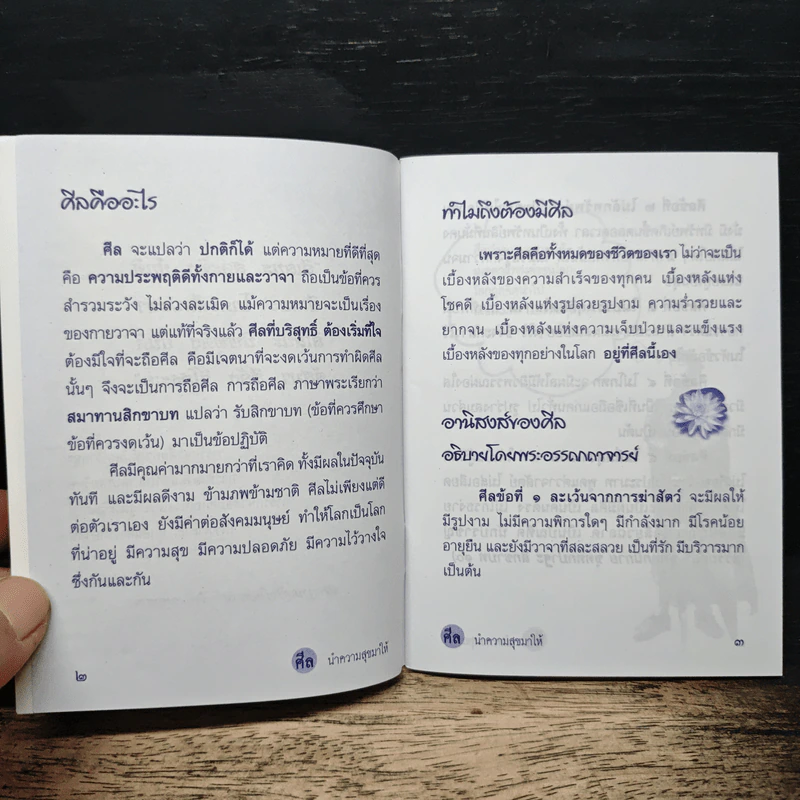 ศีลคืออะไร
ศีล จะแปลว่า ปกติก็ได้ แต่ความหมายที่ดีที่สุด
คือ ความประพฤติดีทั้งกายและวาจา ถือเป็นข้อที่ควร
สำรวมระวัง ไม่ล่วงละเมิด แม้ความหมายจะเป็นเรื่อง
ของกายวาจา แต่แท้ที่จริงแล้ว ศีลที่บริสุทธิ์ ต้องเริ่มที่ใจ
ต้องมีใจที่จะถือศีล คือมีเจตนาที่จะงดเว้นการทำผิดศีล
นั้นๆ จึงจะเป็นการถือศีล การถือศีล ภาษาพระเรียกว่า
สมาทานสิกขาบท แปลว่า รับสิกขาบท (ข้อที่ควรศึกษา
ข้อที่ควรงดเว้น) มาเป็นข้อปฏิบัติ
ศีลมีคุณค่ามากมายกว่าที่เราคิด ทั้งมีผลในปัจจุบัน
ทันที และมีผลดีงาม ข้ามภพข้ามชาติ ศีลไม่เพียงแต่ดี
ต่อตัวเราเอง ยังมีค่าต่อสังคมมนุษย์ ทำให้โลกเป็นโลก
ที่น่าอยู่ มีความสุข มีความปลอดภัย มีความไว้วางใจ
ซึ่งกันและกัน
๒
ศีล นำความสุขมาให้
ทำไมถึงต้องมีศีล
เพราะศีลคือทั้งหมดของชีวิตของเรา ไม่ว่าจะเป็น
เบื้องหลังของความสำเร็จของทุกคน เบื้องหลังแห่ง
โชคดี เบื้องหลังแห่งรูปสวยรูปงาม ความร่ำรวยและ
ยากจน เบื้องหลังแห่งความเจ็บป่วยและแข็งแรง
เบื้องหลังของทุกอย่างในโลก อยู่ที่ศีลนี้เอง
อานิสงส์ของศีล
อธิบายโดยพระอรรถกถาจารย์
ศีลข้อที่ ๑ ละเว้นจากการฆ่าสัตว์ จะมีผลให้
มีรูปงาม ไม่มีความพิการใดๆ มีกำลังมาก มีโรคน้อย
อายุยืน และยังมีวาจาที่สละสลวย เป็นที่รัก มีบริวารมาก
เป็นต้น
ศีล นำความสุขมาให้
๓